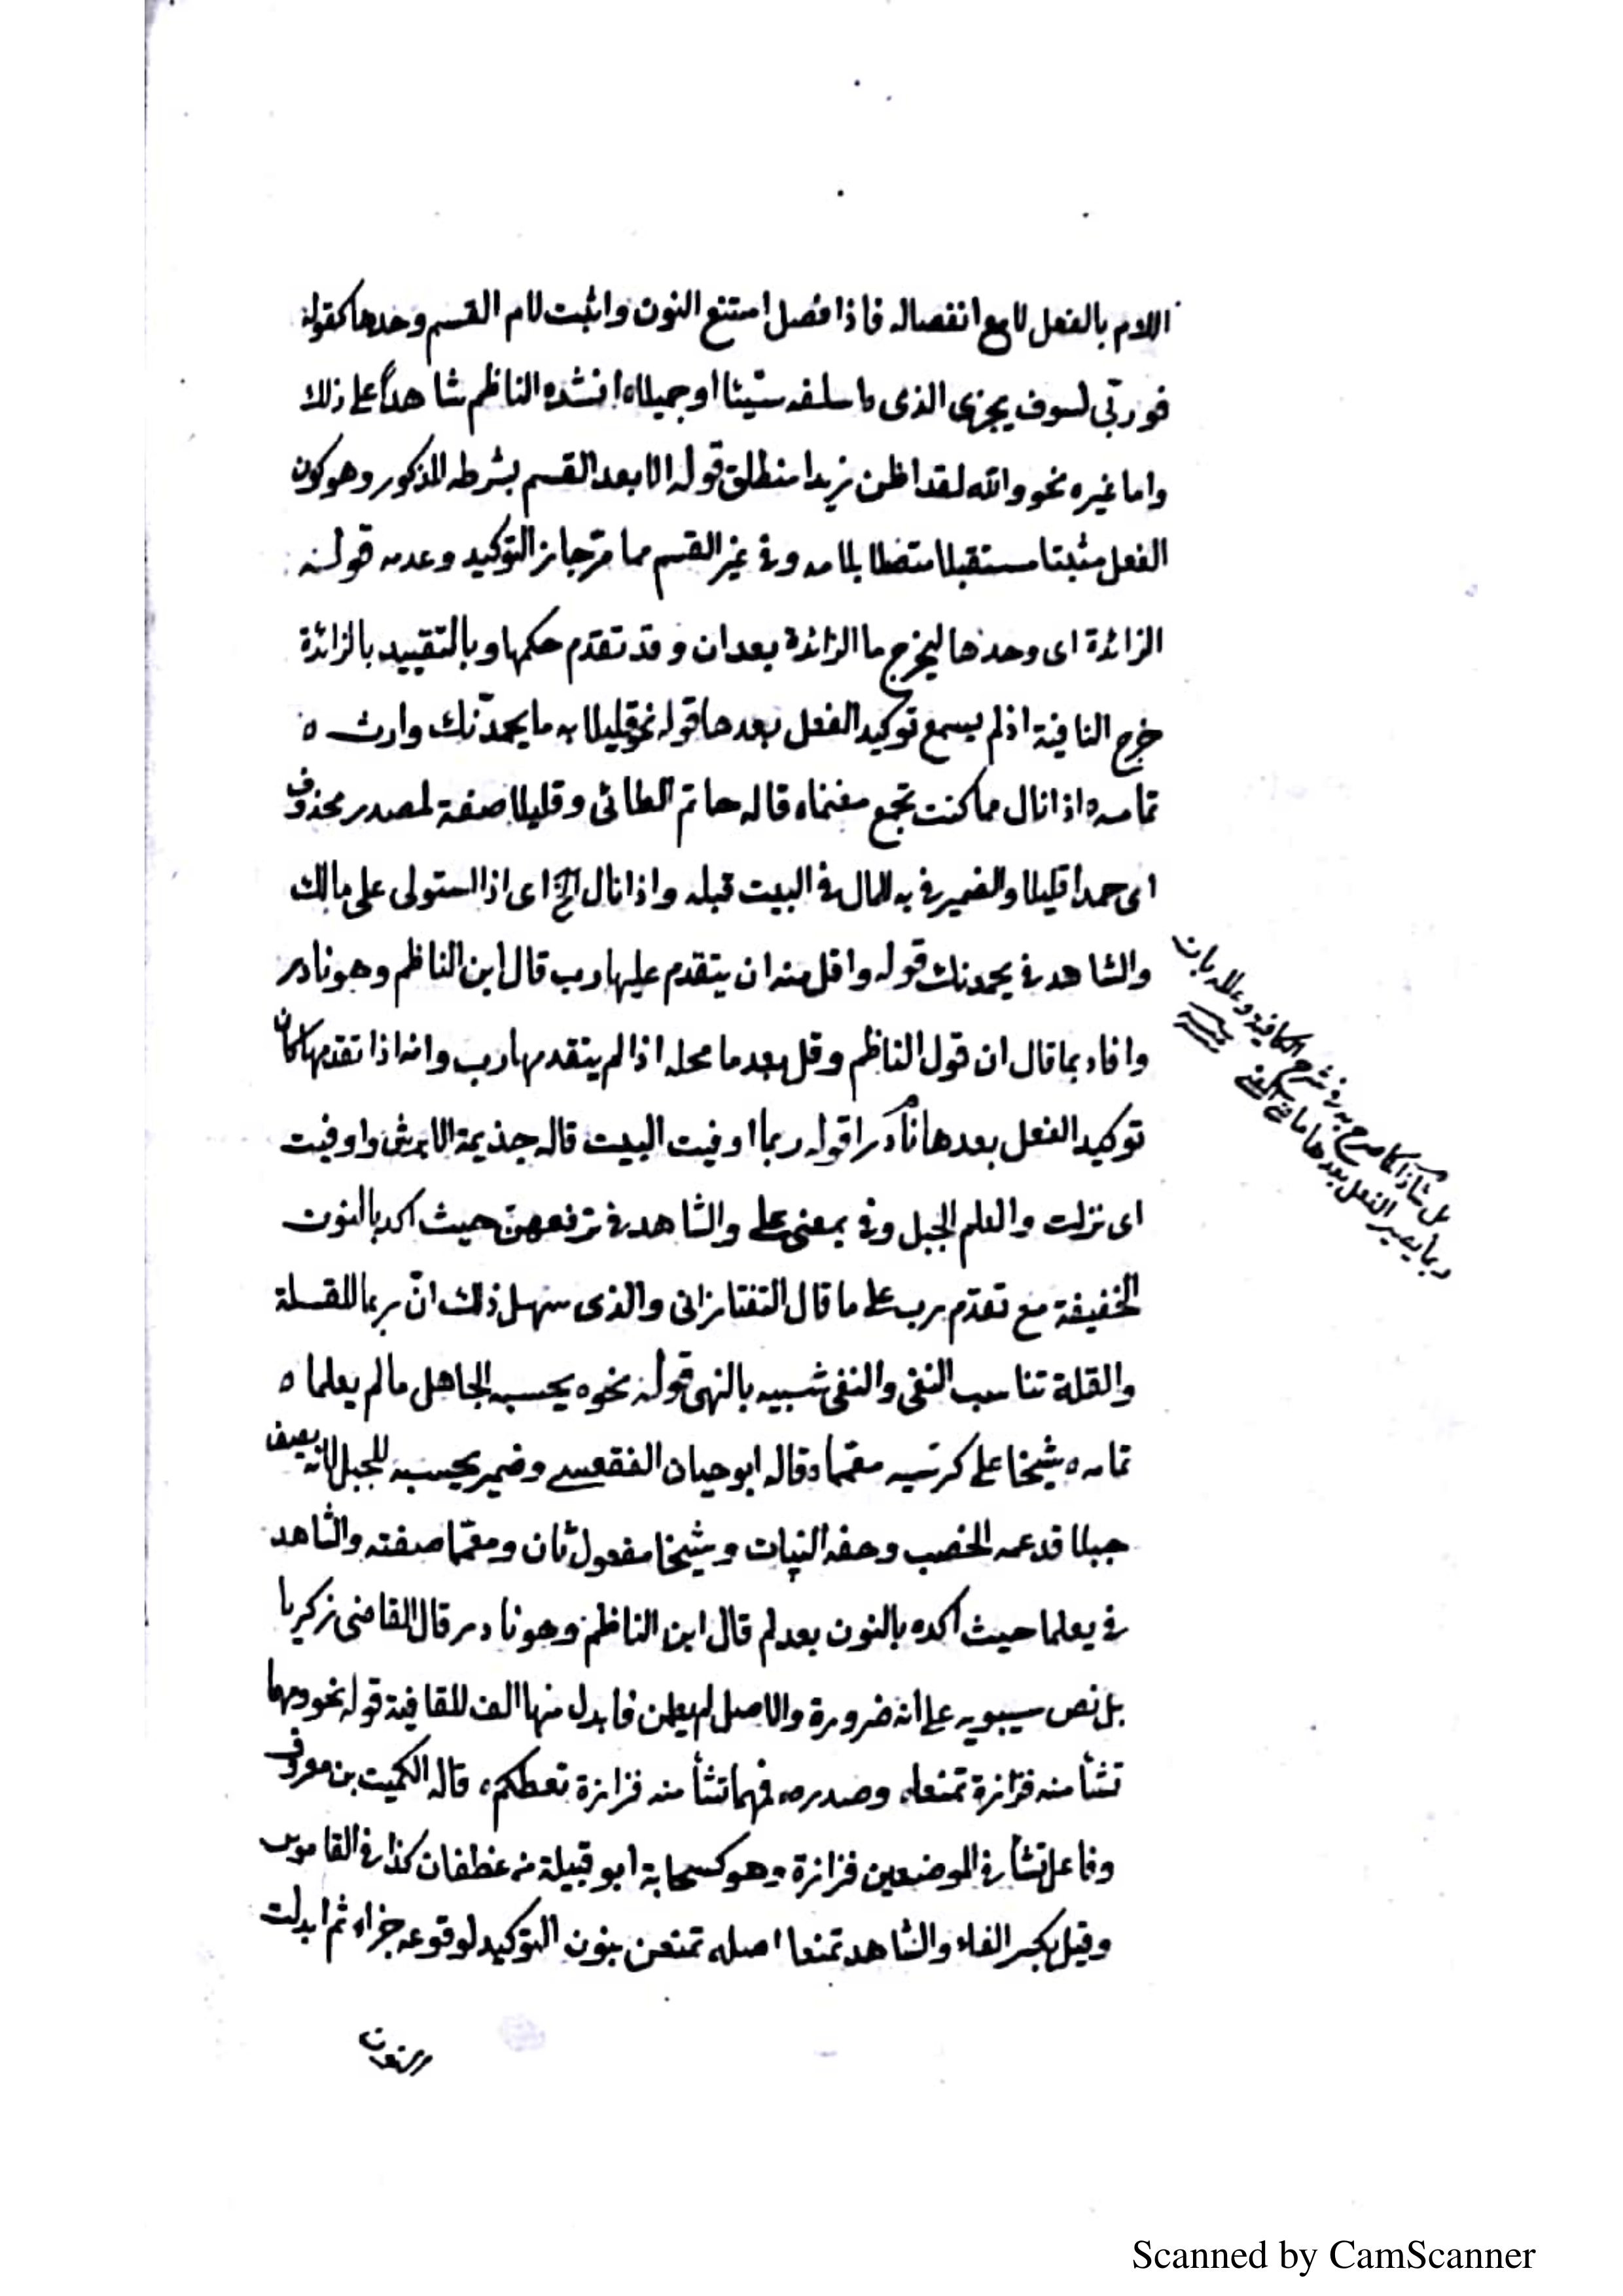 اللام بالفعل لا مع انفصاله فاذا فصل امتنع النون واثبت لام القسم وحدها كقوله
فوربّي لسوف يجزى الذى اسلفه سيّئا او جميلا ه انشده الناظم شاهداً على ذلك
واما غيره نحو والله لقد اظن زيدا منطلق قوله الا بعد القسم بشرطه المذكور وهو كون
الفعل مثبتا مستقبلا متصلا بلامه وفى غير القسم مما مرّ جايز التوكيد وعدمه قوله
الزائدة اى وحدها ليخرج ما الزائدة بعد ان وقد تقدم حكمها وبالتقييد بالزائدة
خرج النافية اذ لم يسمع توكيد الفعل بعدها قوله نحو قليلا به ما يحمدّنك وارث ه
تمامه ه اذا نال مما كنت تجمع مغنما ه قاله حاتم الطائى وقليلا صفة لمصدر محذوف
اى حمدا قليلا والضمير فى به للمال فى البيت قبله واذا نال الخ اى اذا استولى على مالك
والشاهد فى يحمدنك قوله واقل منه ان يتقدم عليها رب قال ابن الناظم وهو نادر
وافاد بما قال ان قول الناظم وقل بعد ما محله اذا لم يتقدمها رب وانه اذا تقدمها كان
توكيد الفعل بعدها نادرا قوله ربما اوفيت البيت قاله جذيمة الابرش واوفيت
اى نزلت والعلم الجبل وفى بمعنى على والشاهد فى ترفعهن حيث اكد بالنون
الخفيفة مع تقدّم رب على ما قال التفتازانى والذى سهل ذلك انّ ربما للقلة
والقلة تناسب النفى والنفى شبيه بالنهى قوله نحو ه يحسبه الجاهل ما لم يعلما ه
تمامه ه شيخا على كرسيه معمّما ه قاله ابو حيان الفقعسى وضمير يحسبه للجبل لانه يصف
جبلا قد عمه الخصب وحفه النبات وشيخا مفعول ثان ومعمّا صفته والشاهد
فى يعلما حيث اكده بالنون بعد لم قال ابن الناظم وهو نادر قال القاضى زكريا
بل نص سيبويه على انه ضرورة والاصل لم يعلمن فابدل منها الف للقافية قوله نحو ومهما
تشأ منه فزارة تمنعا ه وصدره ه فمهما تشأ منه فزارة تعطكم ه قاله الكميت بن معروف
وفاعل تشأ فى الموضعين فزارة وهو كسحابة ابو قبيلة من غطفان كذا فى القاموس
وقيل بكسر الفاء والشاهد تمنعا اصله تمنعن بنون التوكيد لوقوعه جزاء ثم ابدلت
النون
بل شاذا كما صرح به فى شرح الكافية وعلله بان
ربما يصير الفعل بعدها ماضى المعنى
Scanned by CamScanner